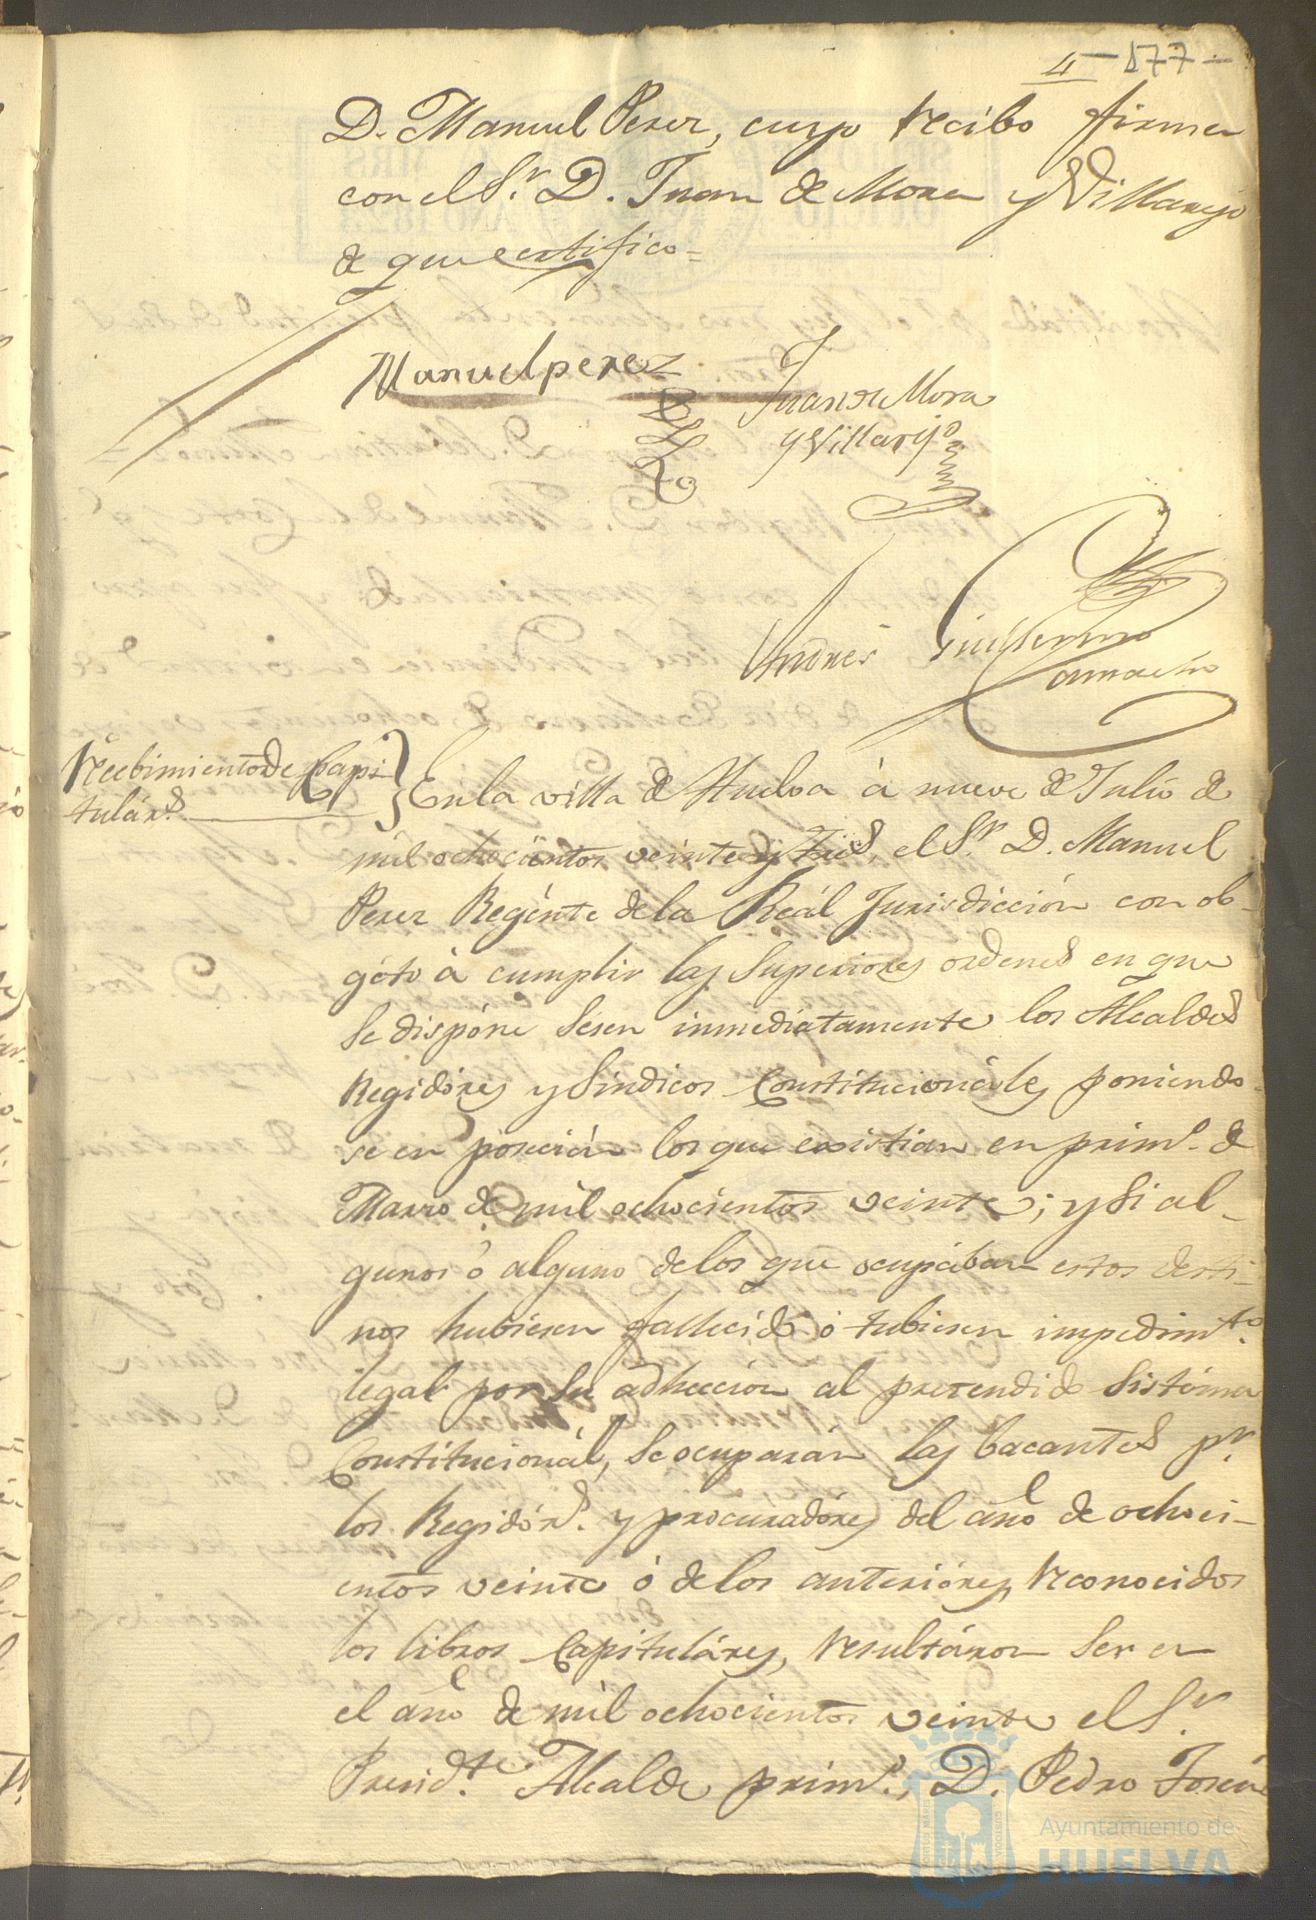 4 - 577 -
D. Manuel Perez, cuyo recibo firma
con el S.r D. Juan de Mora y Villarejo
de que certifico =
Manuel perez
Juan de Mora
y Villarejo
Andres Guillermo
Camacho
Recebimiento de Capi
tuláre.s
En la villa de Huelva à nueve de Julio de
mil ochocientos veinte y tres, el S.r D. Manuel
Perez Regénte de la Reál Jurisdicción con ob-
géto à cumplir las Superiores ordenes en que
se dispóne sesen inmediatamente los Alcaldes
Regidóres y Sindicos Constitucionáles poniendo-
se en posecion los que existian en prim.o de
Marzo de mil ochocientos veinte; y si al-
gunos ó alguno de los que ocupában estos desti-
nos hubiesen fallecido ó tubiesen impedim.to
legal por su adheccion al pretendido Sistéma
Constitucionál, se ocuparán las bacantes p.r
los Regidór.s y procuradóres del año de ochoci-
entos veinte ó de los anterióres, reconocidos
los libros Capituláres, resultáron ser en
el año de mil ochocientos veinte el S.r
Presid.te Alcalde prim.o, D. Pedro José
Ayuntamiento de
HUELVA